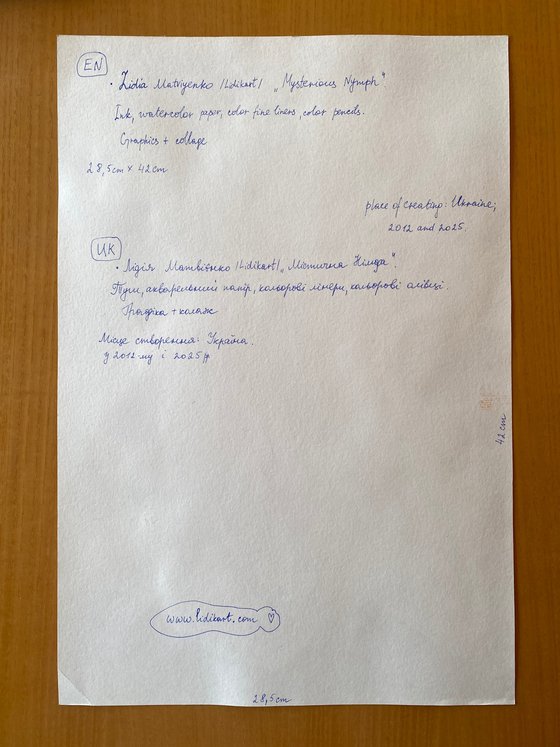 EN
• Lidia Matviyenko /Lidikart/ „Mysterious Nymph“
Ink, watercolor paper, color fine liners, color pencils.
Graphics + collage
28,5cm × 42cm
place of creating: Ukraine,
2012 and 2025.
UK
• Лідія Матвієнко /Lidikart/ „Містична Німфа“.
Туш, акварельний папір, кольорові лінери, кольорові олівці.
Графіка + колаж
Місце створення: Україна.
у 2012-му і 2025 р
42 cm
www.lidikart.com ♡
28,5cm